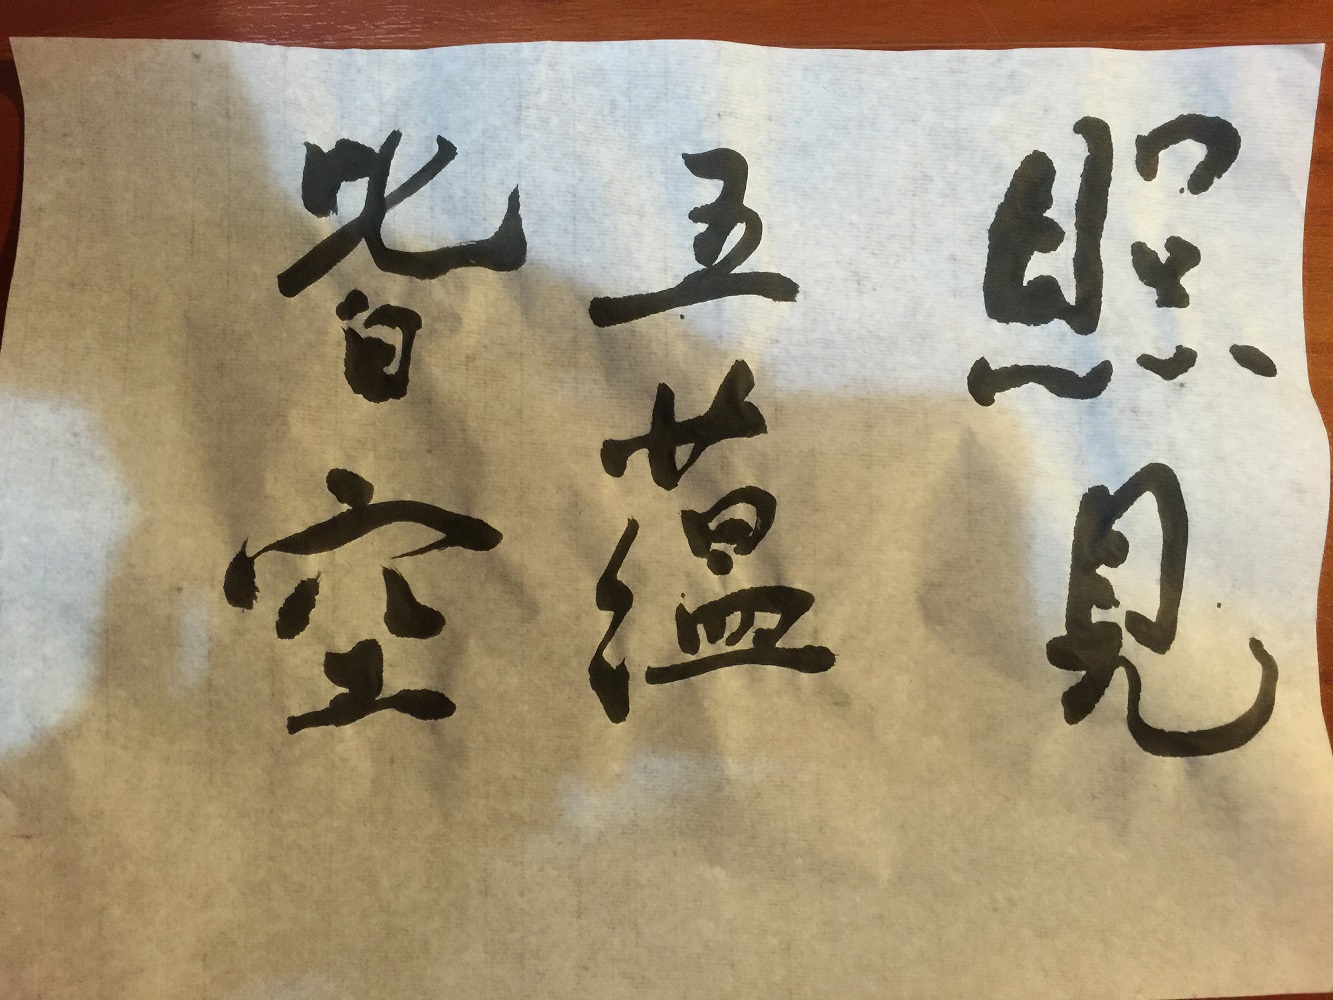 照見
五蘊
皆空